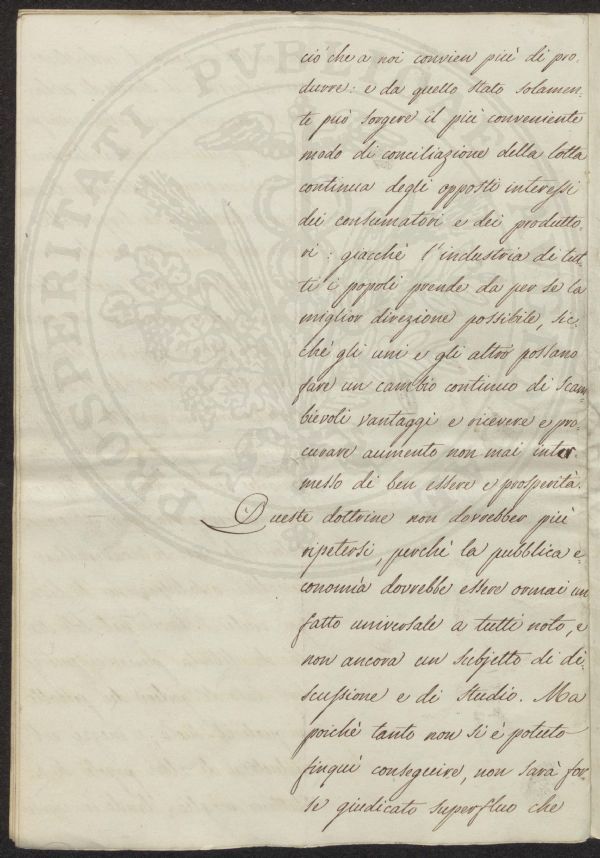 ciò che a noi convien più di pro-
durre: e da quello stato solamen-
te può sorgere il più conveniente
modo di conciliazione della lotta
continua degli opposti interessi
dei consumatori e dei produtto-
ri: giacchè l'industria di tut-
ti i popoli prende da per se la
miglior direzione possibile, sic-
chè gli uni e gli altri possano
fare un cambio continuo di scam-
bievoli vantaggi e ricevere e pro-
curare aumento non mai inter-
messo di ben essere e prosperità.
Queste dottrine non dovrebber più
ripetersi, perchè la pubblica e-
conomia dovrebbe essere ormai un
fatto universale a tutti noto, e
non ancora un subjetto di di-
scussione e di studio. Ma
poichè tanto non si è potuto
finquì conseguire, non sarà for-
se giudicato superfluo che
POSTERITATI PVBLICAE